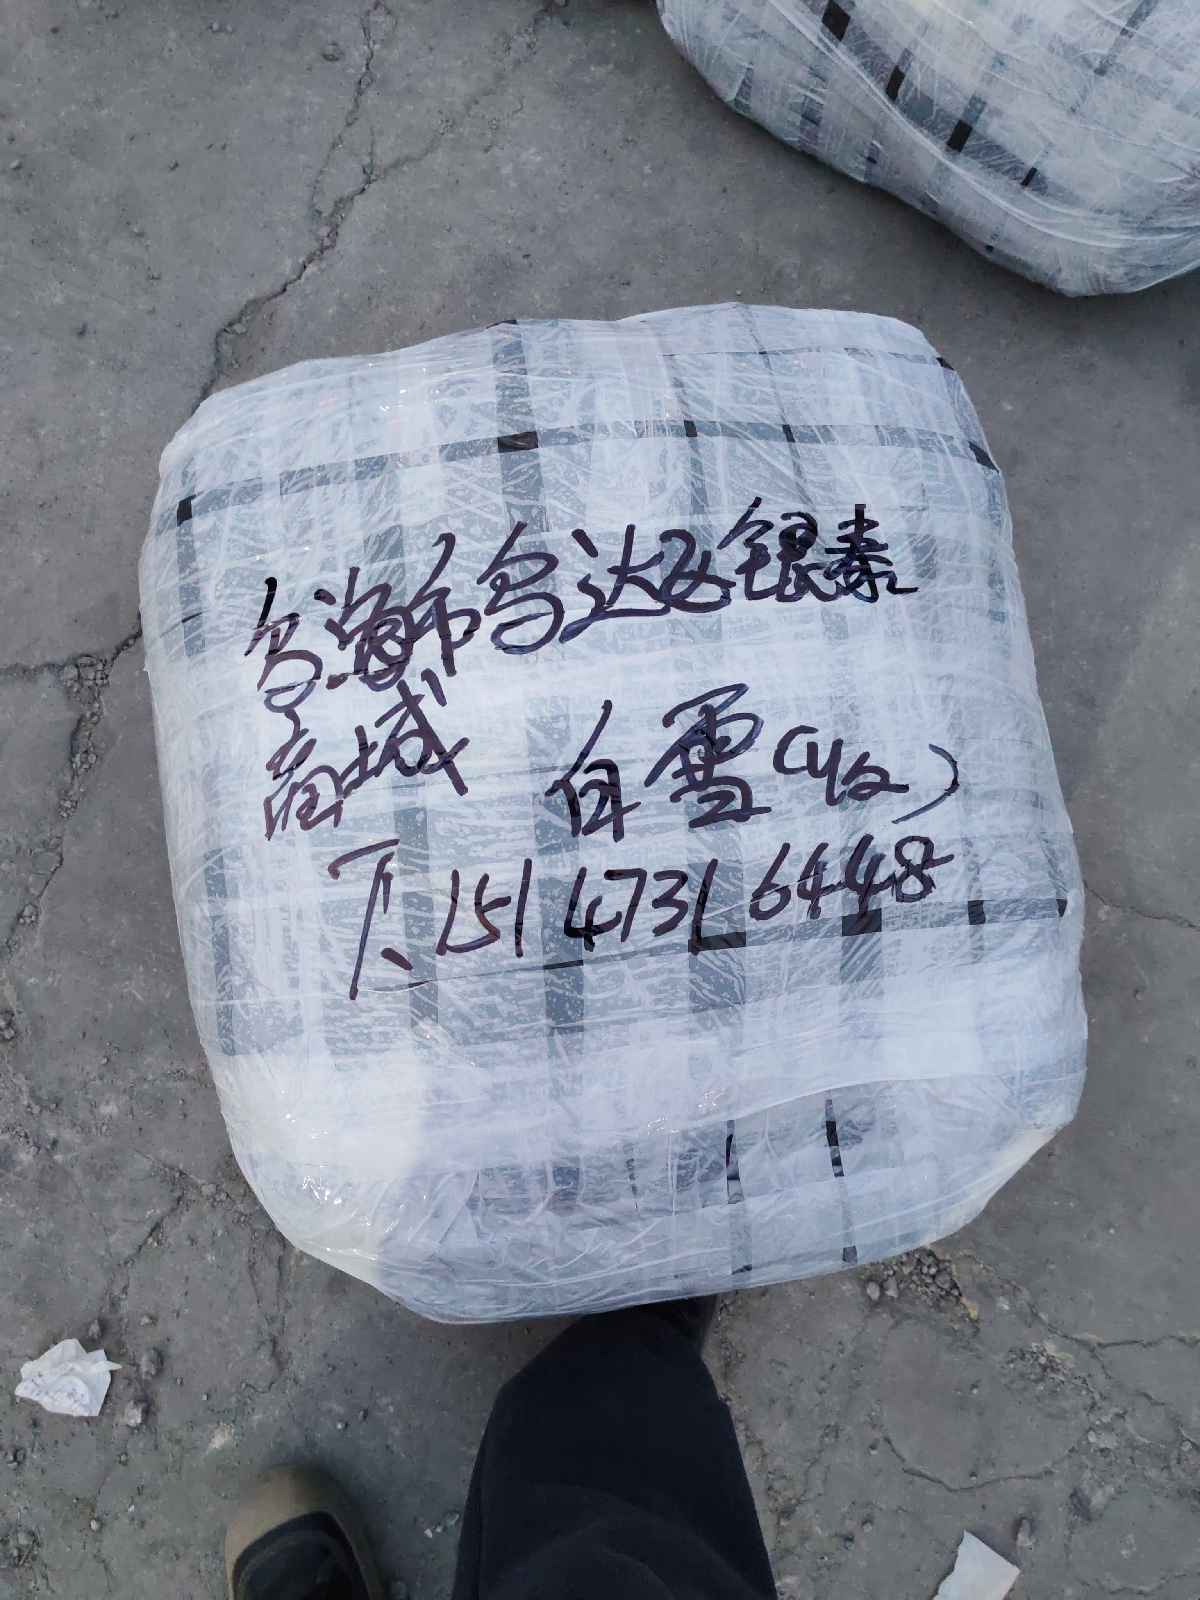 乌海市乌达区银泰
商城 白雪(4包)
下.15147316448